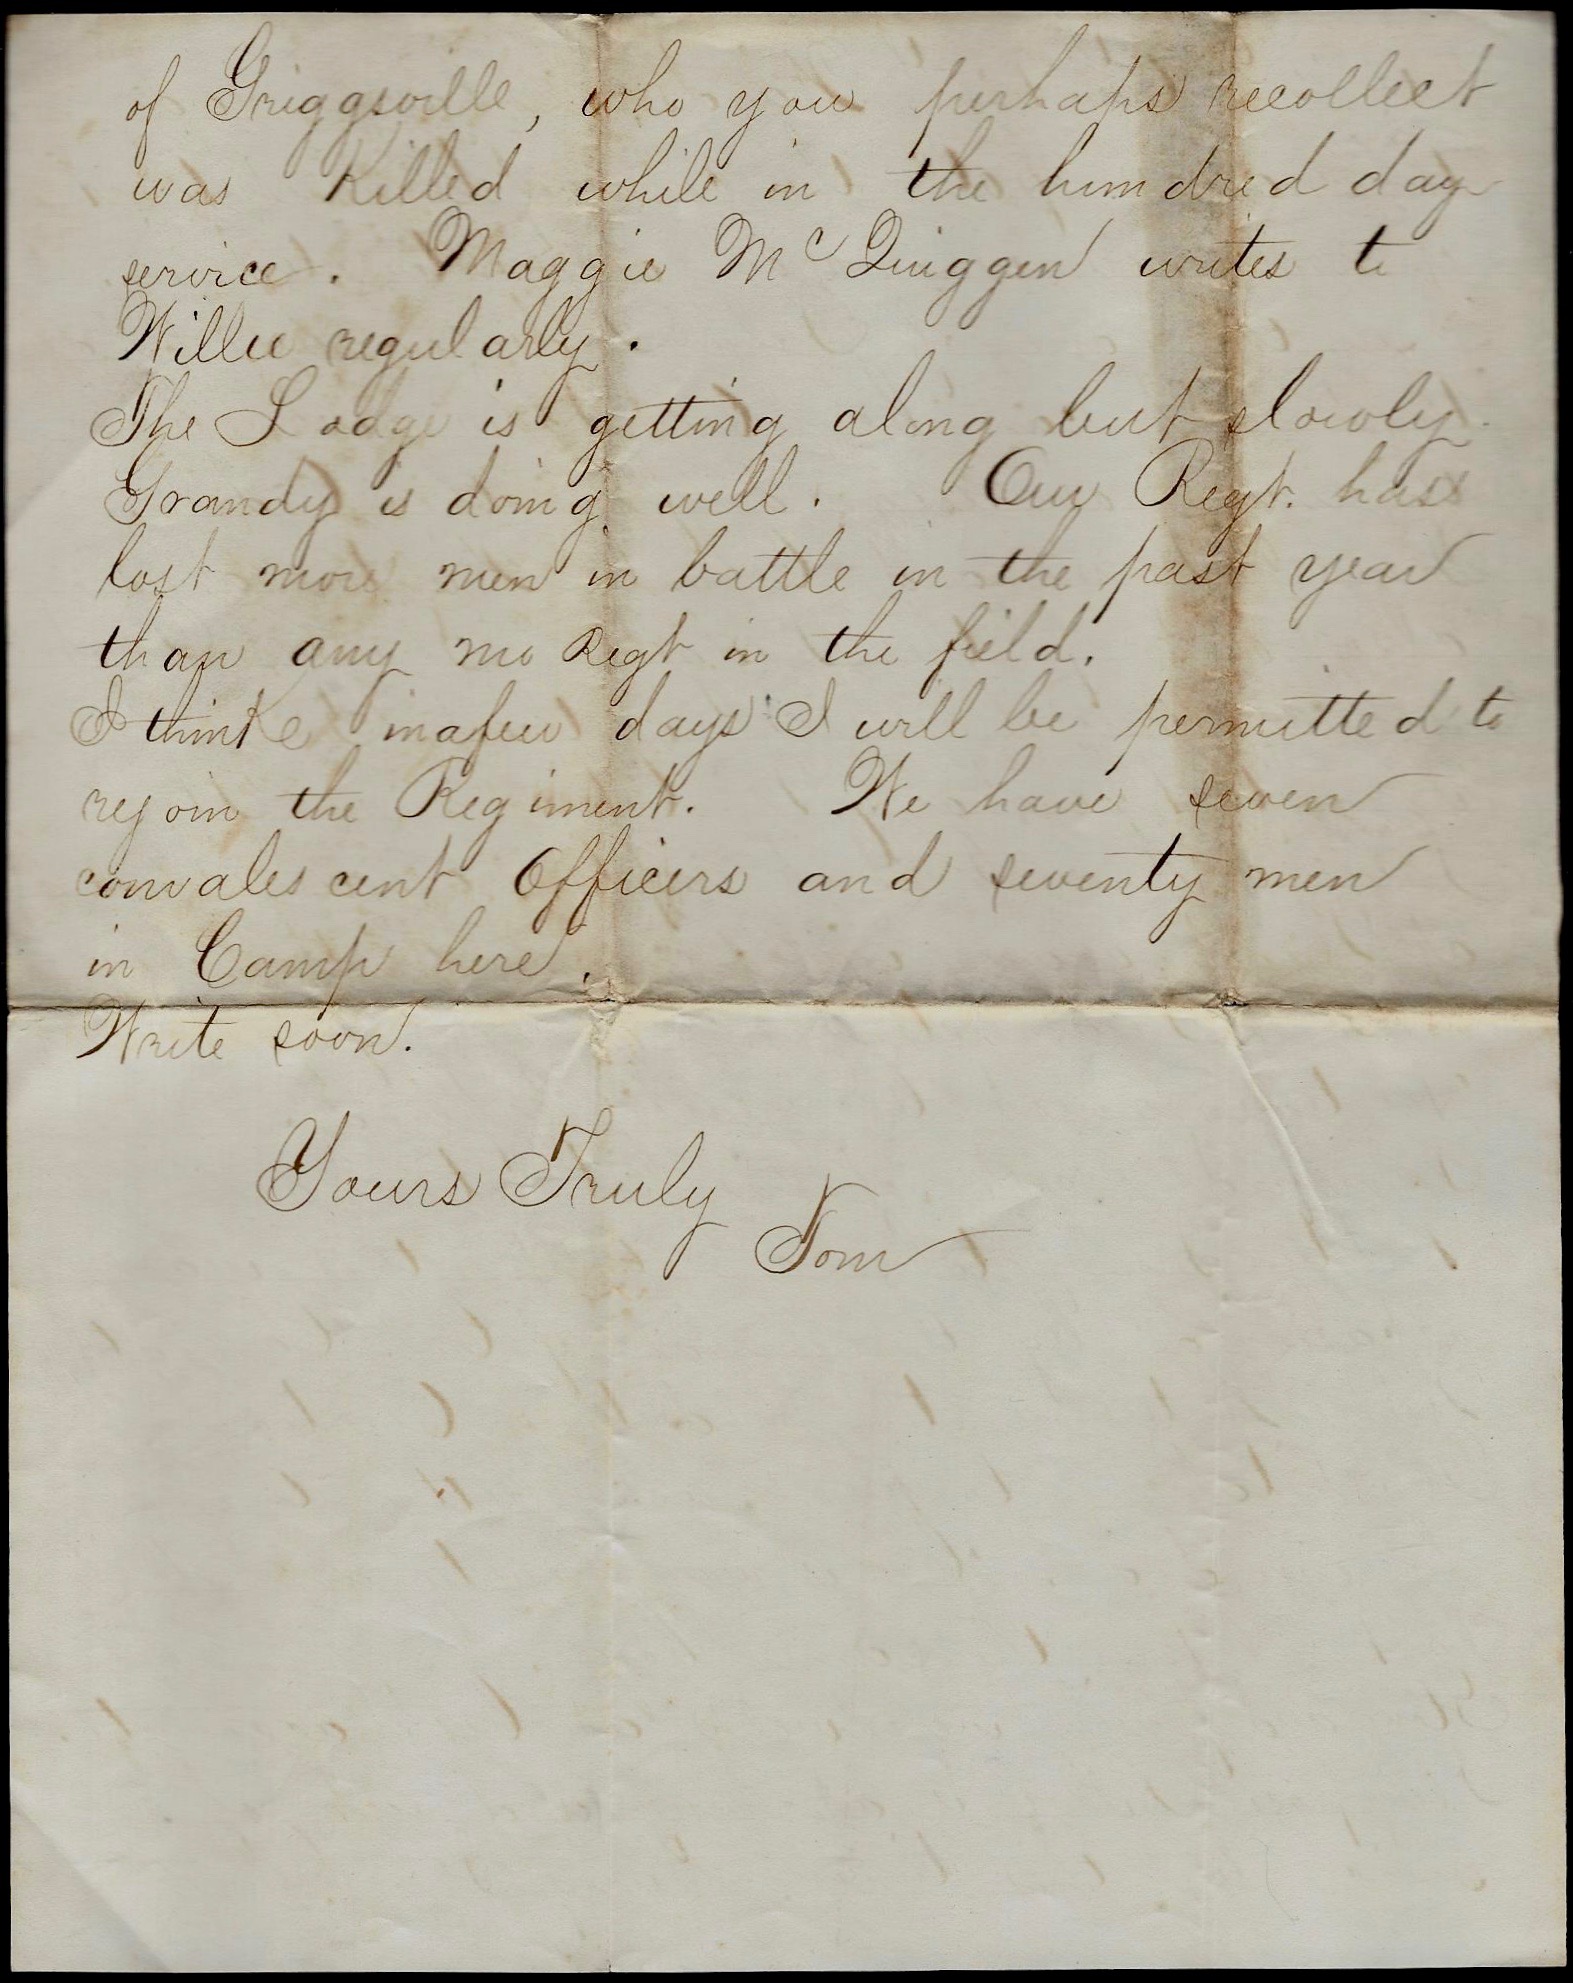 of Griggsville, who you perhaps recollect
was Killed while in the hundred day
service. Maggie McQuiggen writes to
Willie regularly.
The Lodge is getting along but slowly.
Grandy is doing well. Our Regt. has
lost more men in battle in the past year
than any mo Regt in the field.
I think in a few days I will be permitted to
rejoin the Regiment. We have seven
convalescent Officers and seventy men
in Camp here.
Write soon.
Yours Truly
Tom